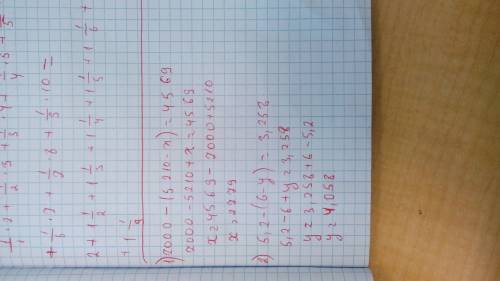 2 + 1 1/2 + 1 1/3 + 1 1/4 + 1 1/5 + 1 1/6 +
+ 1 1/9
1) 2000 - (5210 - x) = 4569
2000 - 5210 + x = 4569
x = 4569 - 2000 + 5210
x = 7779
2) 5,2 - (6 - y) = 3,258
5,2 - 6 + y = 3,258
y = 3,258 + 6 - 5,2
y = 4,058